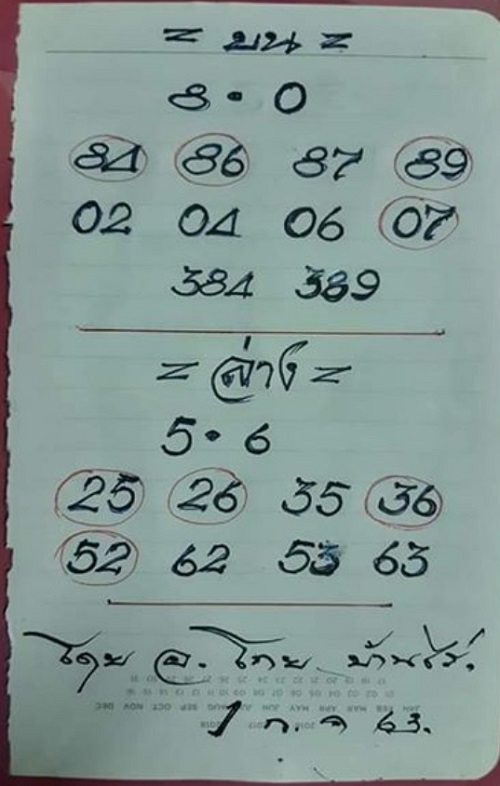 = บน =
8 • 0
84 86 87 89
02 04 06 07
384 389
= ล่าง =
5 • 6
25 26 35 36
52 62 53 63
โดย อ. ไทย บ้านไร่.
1 ก.ค 63.